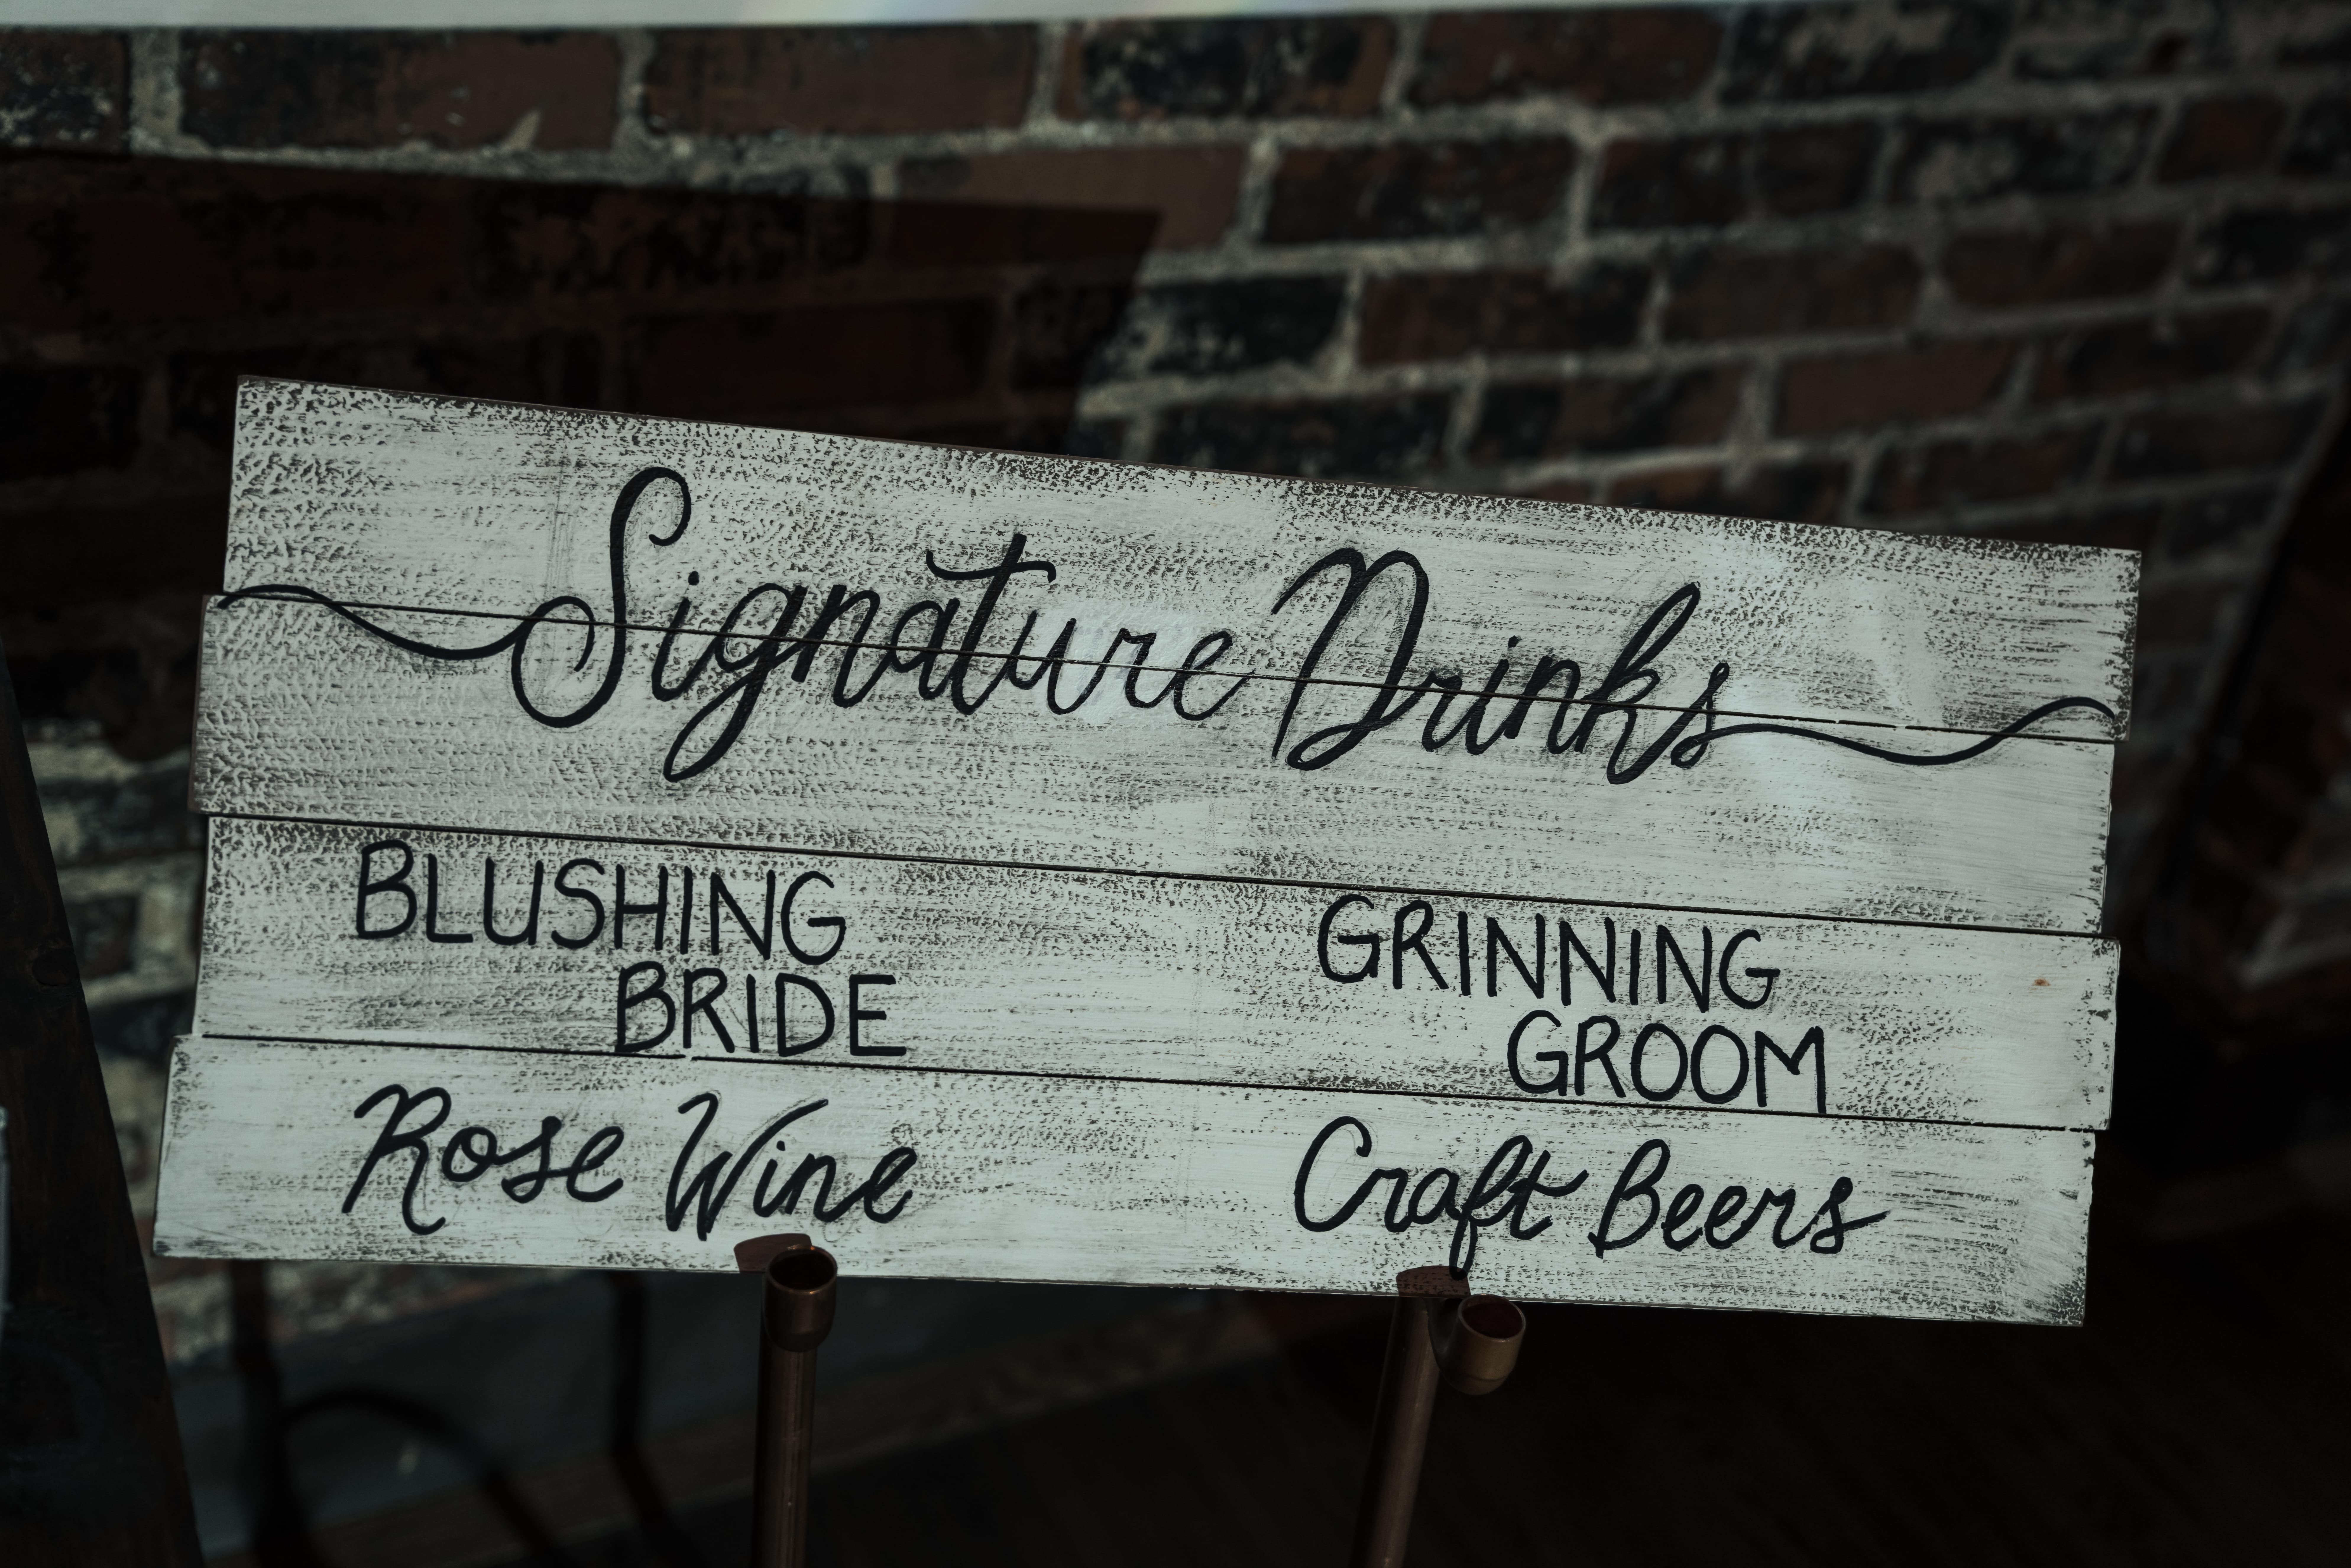 Signature Drinks
BLUSHING
BRIDE
Rose Wine
GRINNING
GROOM
Craft Beers